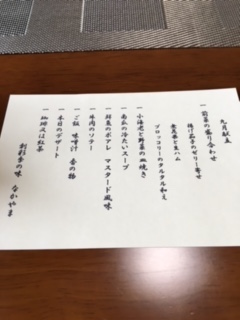 九月献立
一 前菜の盛り合わせ
揚げ茄子のゼリー寄せ
無花果と生ハム
ブロッコリーのタルタル和え
一 小海老と野菜の皿焼き
一 南瓜の冷たいスープ
一 鮮魚のポアレ マスタード風味
一 牛肉のソテー
一 ご飯 味噌汁 香の物
一 本日のデザート
一 珈琲又は紅茶
創彩季の味 なかやま